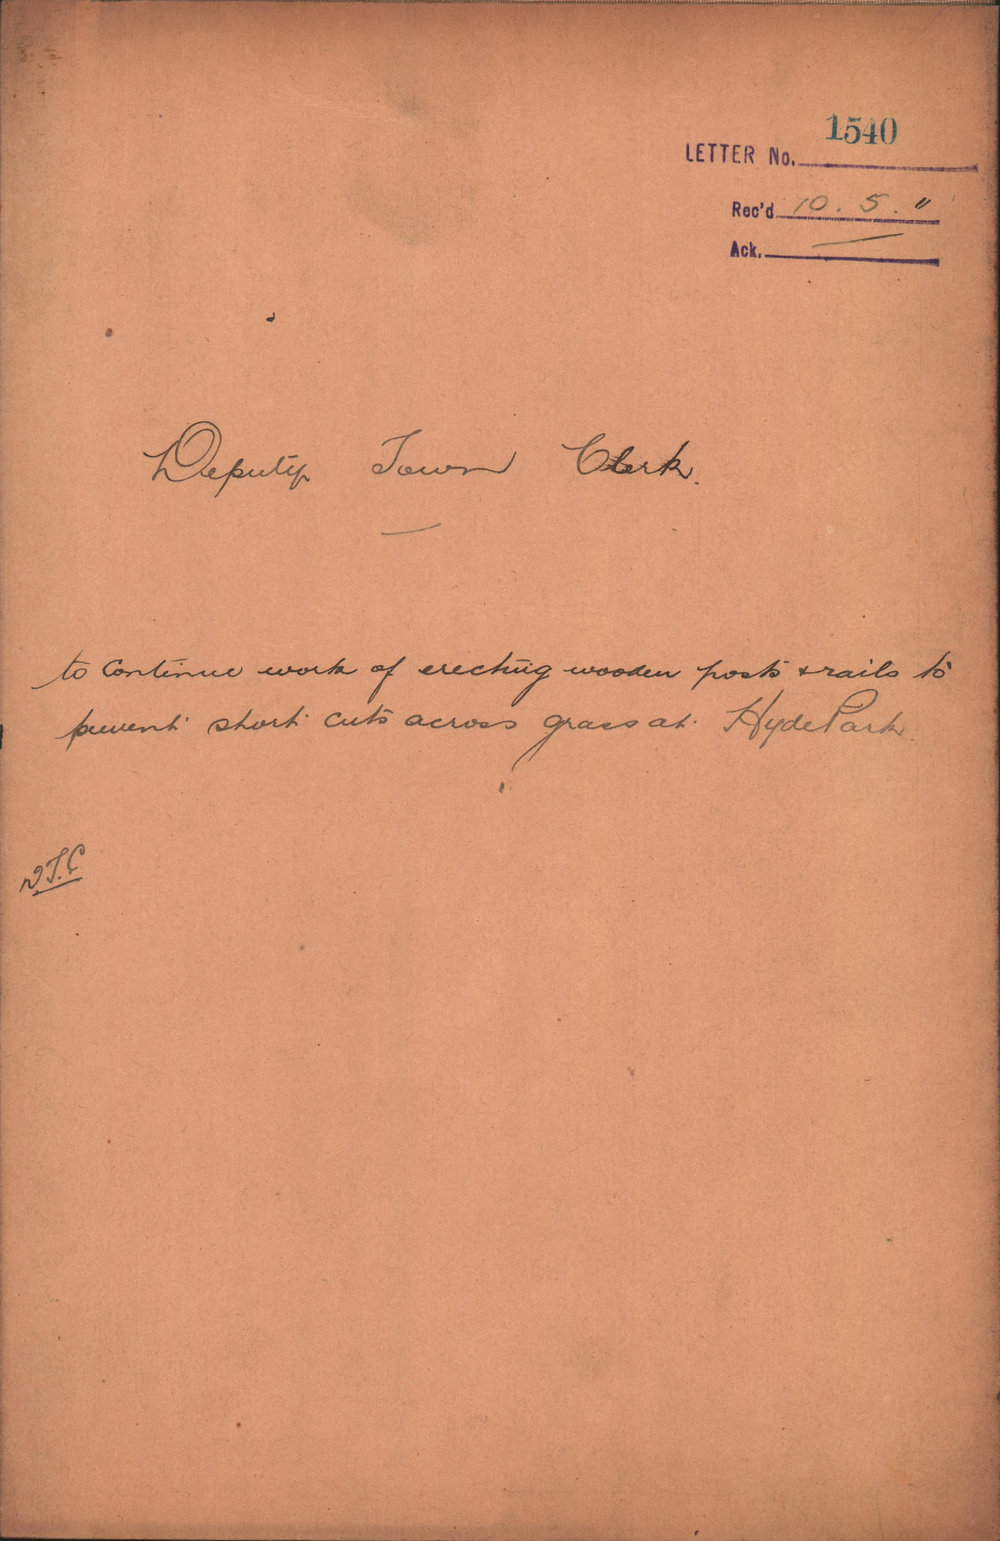 1540
LETTER No.
Rec'd 10. 5. "
Ack. —
Deputy Town Clerk.
to continue work of erecting wooden posts & rails to
prevent short cuts across grass at Hyde Park.
D.T.C